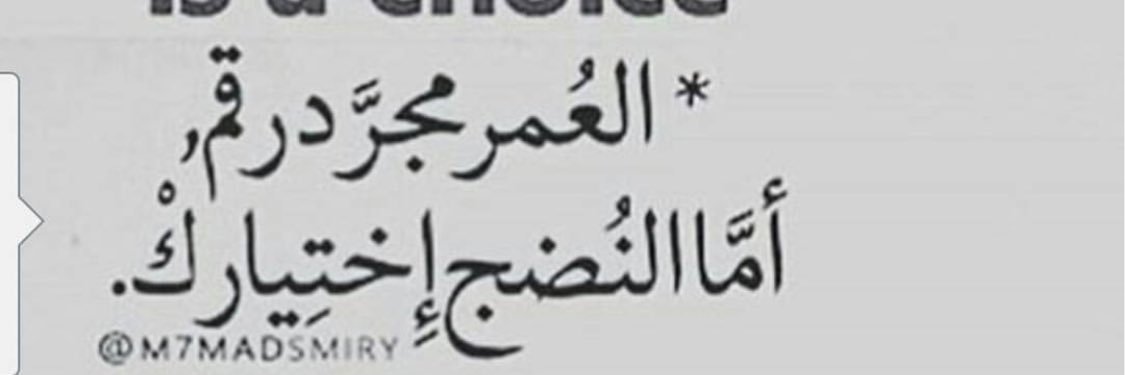 is a choice
* العُمر مجرَّد رقم,
أمَّا النُضج إِختِياركْ.
@M7MADSMIRY